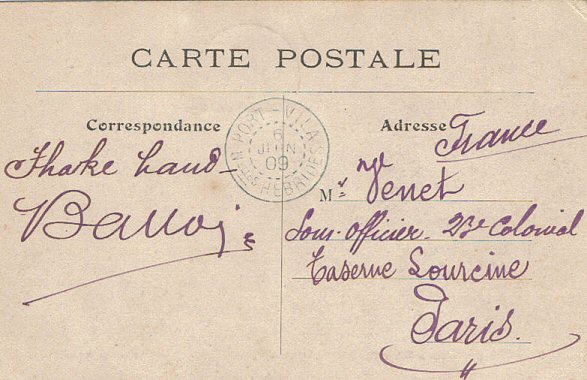 CARTE POSTALE
Correspondance
Adresse
France
PORT-VILA
6
JUIN
09
NLLES HEBRIDES
Shake hand
Mr Venet
Sous-officier 23e Colonial
Caserne Lourcine
Paris.